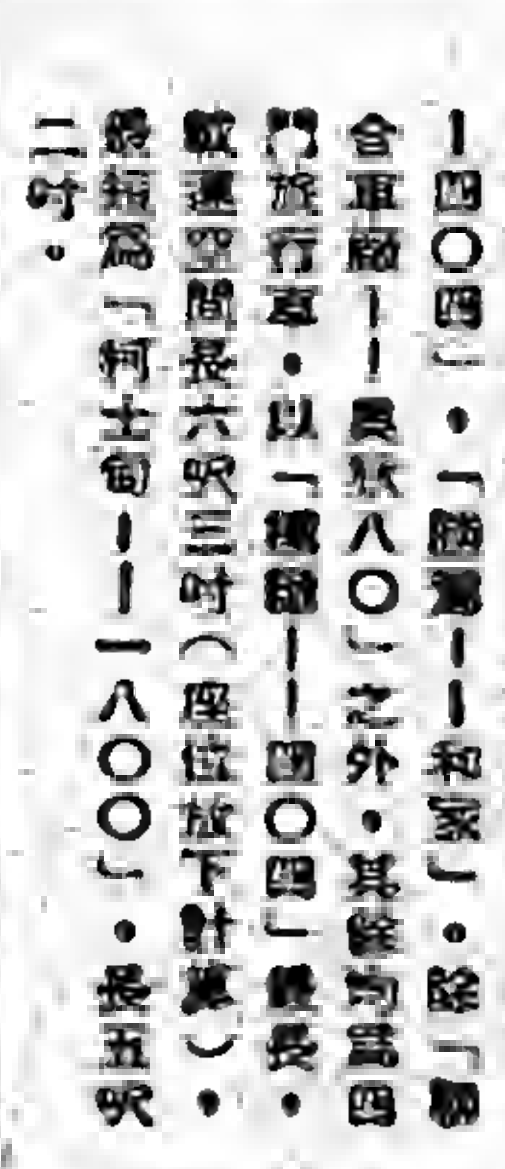 一四〇四」。「勝利——和家」。除「聯
合車廠——英状八〇」之外。其餘均為四
門旅行車。以「標緻——四〇四」最長。
載運空間長六呎三吋（座位放下計算）。
最短為「柯士甸——一八〇〇」。長五呎
二吋。